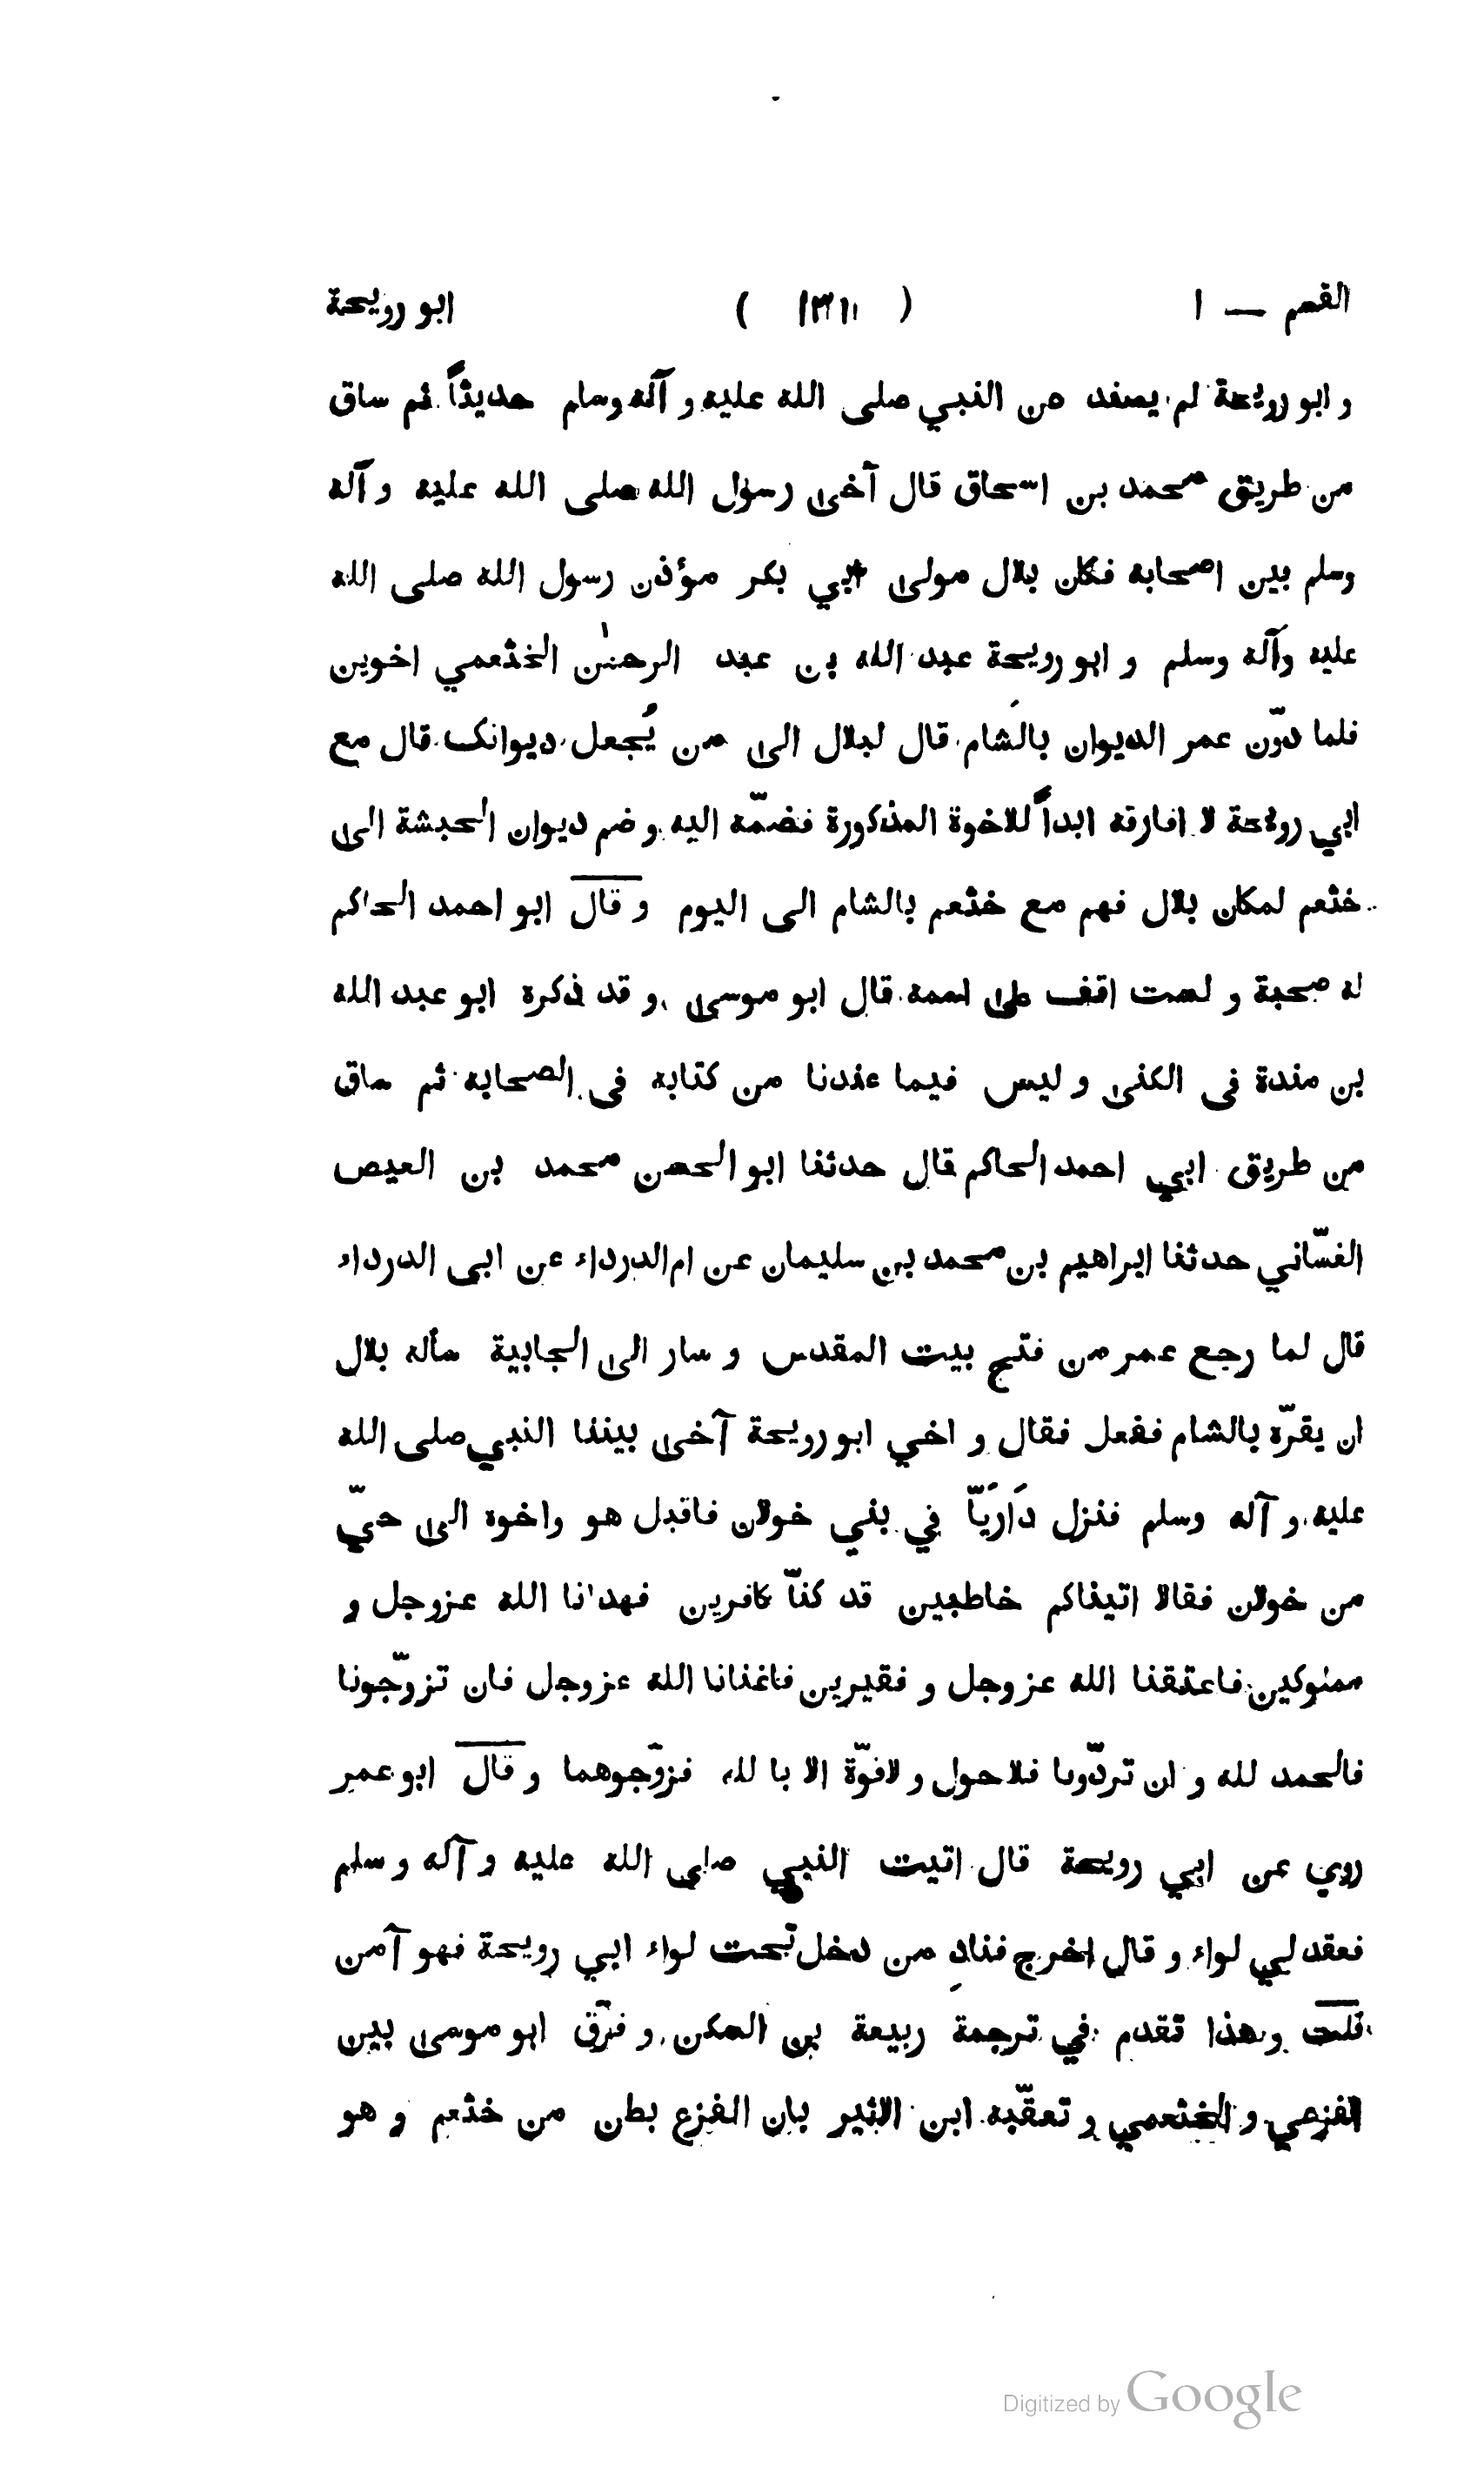 القسم — ١ ( ١٣١ ) ابو رويحة
و ابو رويحة لم يسند عن النبي صلى الله عليه و آله وسلم حديثاً ثم ساق
من طريق محمد بن اسحاق قال آخى رسول الله صلى الله عليه و آله
وسلم بين اصحابه فكان بلال مولى ابي بكر مؤذن رسول الله صلى الله
عليه وآله وسلم و ابو رويحة عبد الله بن عبد الرحمٰن الخثعمي اخوين
فلما دوّن عمر الديوان بالشام قال لبلال الى من يُجعل ديوانك قال مع
ابي رويحة لا افارقه ابداً للاخوة المذكورة فضمّه اليه و ضم ديوان الحبشة الى
خثعم لمكان بلال فهم مع خثعم بالشام الى اليوم و قال ابو احمد الحاكم
له صحبة و لست اقف على اسمه قال ابو موسى و قد ذكره ابو عبد الله
بن مندة فى الكنى و ليس فيما عندنا من كتابه فى الصحابه ثم ساق
من طريق ابي احمد الحاكم قال حدثنا ابو الحسن محمد بن العيص
الغسّاني حدثنا ابراهيم بن محمد بن سليمان عن ام الدرداء عن ابى الدرداء
قال لما رجع عمر من فتح بيت المقدس و سار الى الجابية سأله بلال
ان يقرّه بالشام ففعل فقال و اخي ابو رويحة آخى بيننا النبي صلى الله
عليه و آله وسلم فنزل دَارَيّا في بني خولان فاقبل هو واخوه الى حيّ
من خولان فقالا اتيناكم خاطبين قد كنّا كافرين فهدانا الله عزوجل و
مملوكين فاعتقنا الله عزوجل و فقيرين فاغنانا الله عزوجل فان تزوّجونا
فالحمد لله و ان تردّونا فلا حول و لاقوّة الا با لله فزوّجوهما و قال ابو عمر
روي عن ابي رويحة قال اتيت النبي صلى الله عليه و آله و سلم
فعقد لي لواء و قال اخرج فنادِ من دخل تحت لواء ابي رويحة فهو آمن
قلت وهذا تقدم في ترجمة ربيعة بن السكن و فرّق ابو موسى بين
الفزعي و الخثعمي و تعقّبه ابن الاثير بان الفزع بطن من خثعم و هو
Digitized by Google